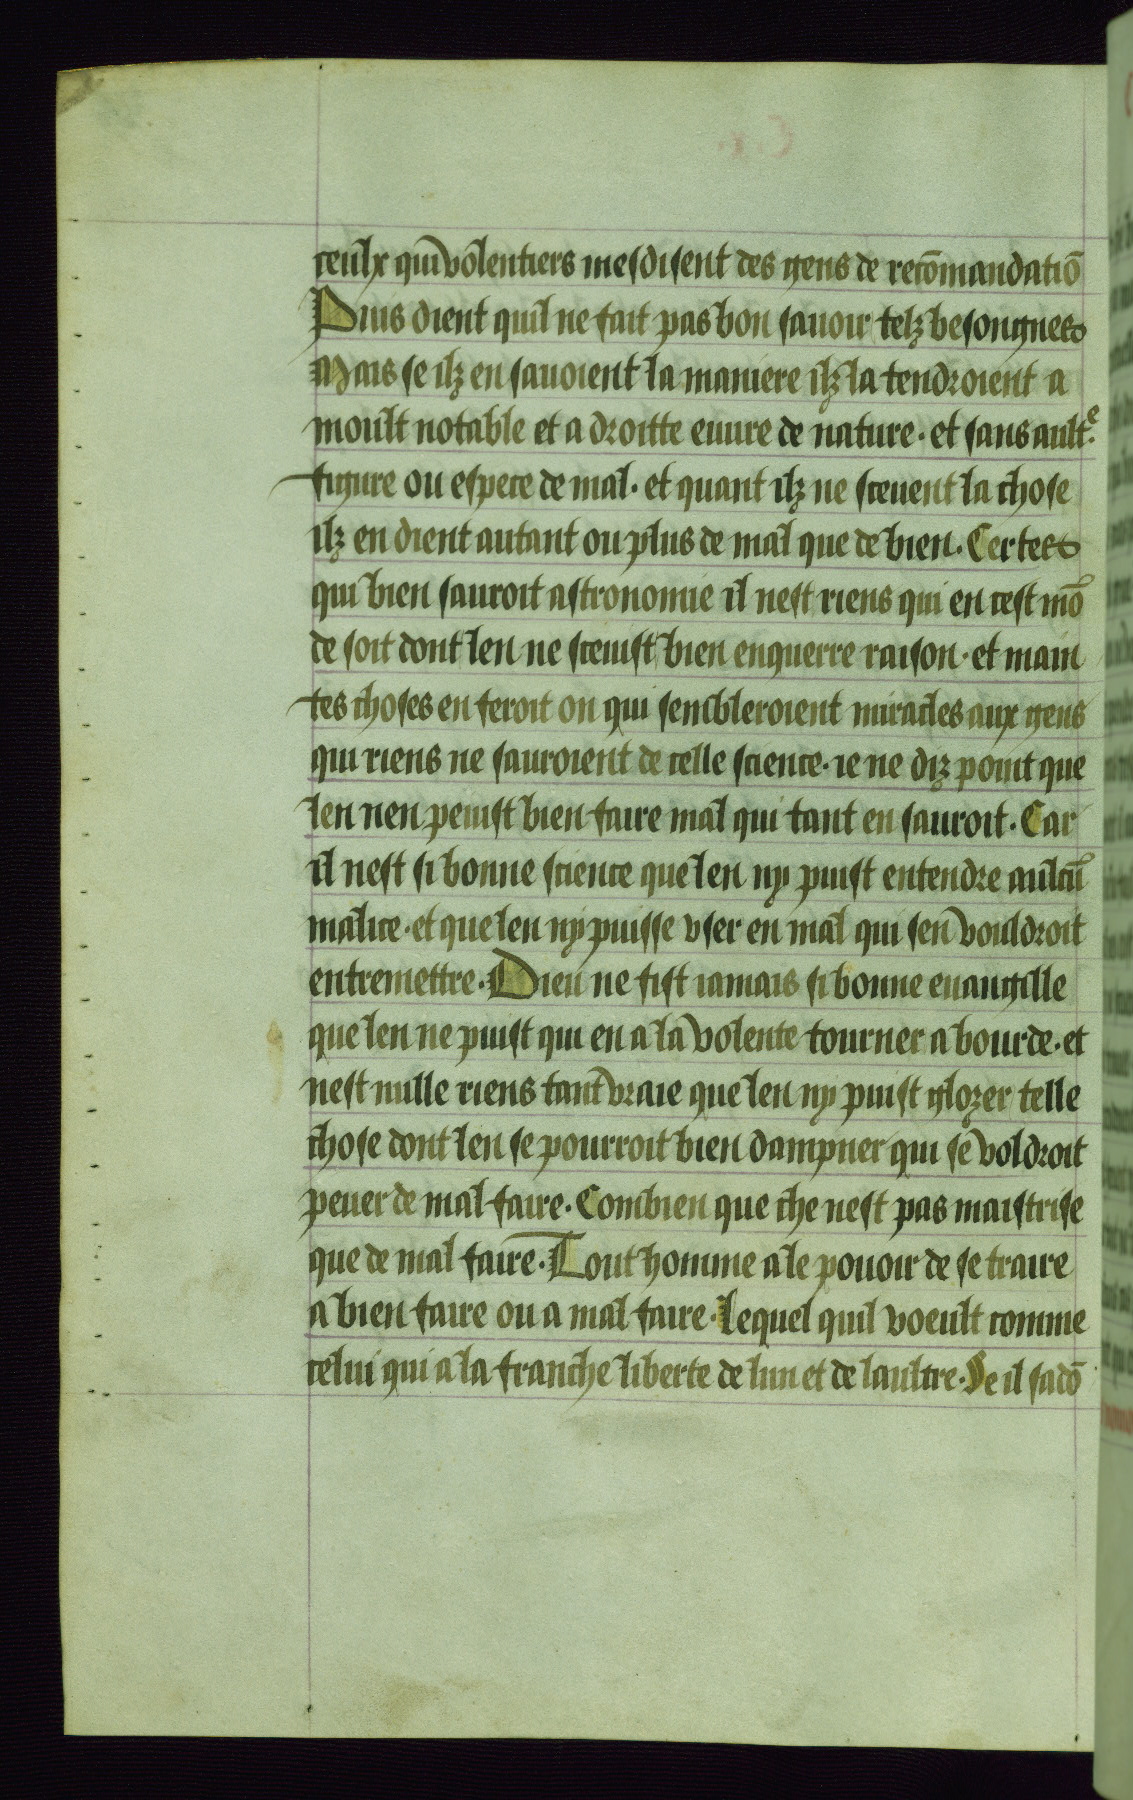 ceulx qui volentiers mesdisent des gens de recōmandatiō
Puis dient quil ne fait pas bon sauoir telz besongnes
Mais se ilz en sauoient la maniere ilz la tendroient a
moult notable et a droitte euure de nature. et sans ault.ᵉ
figure ou espece de mal. et quant ilz ne sceuent la chose
ilz en dient autant ou plus de mal que de bien. Certes
qui bien sauroit astronomie il nest riens qui en cest mō
de soit dont len ne sceuist bien enquerre raison. et main
tes choses en feroit on qui sembleroient miracles aux gens
qui riens ne sauroient de celle science. ie ne diz point que
len nen peuist bien faire mal qui tant en sauroit. Car
il nest si bonne science que len ny puist entendre aulcū
malice. et que len ny puisse vser en mal qui sen vouldroit
entremettre. Dieu ne fist iamais si bonne euangille
que len ne puist qui en a la volente tourner a bourde. et
nest nulle riens tant vraie que len ny puist glozer telle
chose dont len se pourroit bien dampner qui se voldroit
pener de mal faire. Combien que che nest pas maistrise
que de mal faire. Tout homme a le pouoir de se traire
a bien faire ou a mal faire. lequel quil voeult comme
celui qui a la franche liberte de lun et de laultre. Se il sadō